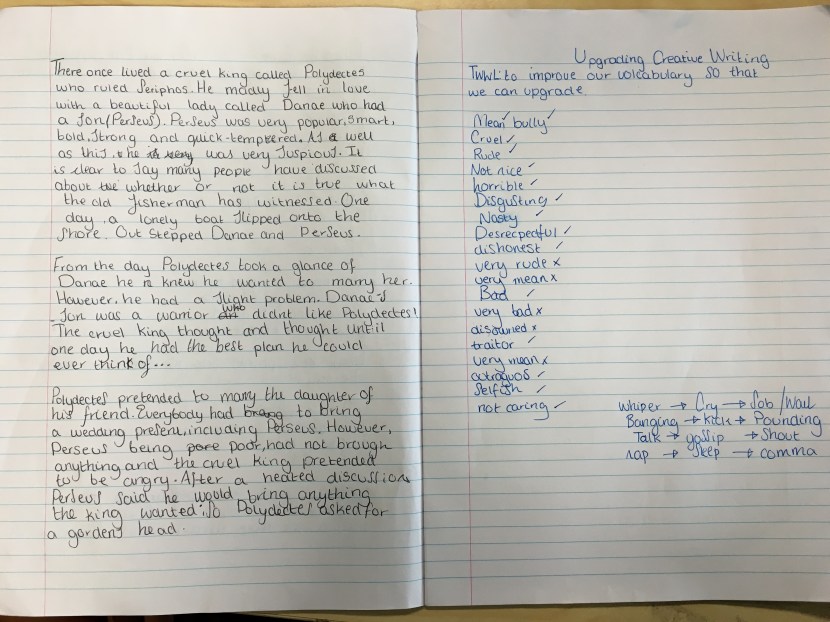 There once lived a cruel king called Polydectes
who ruled Seriphos. He madly fell in love
with a beautiful lady called Danae who had
a son (Perseus). Perseus was very popular, smart,
bold, strong and quick-tempered. As well
as this, he was very suspious. It
is clear to say many people have discussed
about whether or not it is true what
the old fisherman has witnessed. One
day, a lonely boat slipped onto the
shore. Out stepped Danae and Perseus.
From the day Polydectes took a glance of
Danae he knew he wanted to marry her.
However, he had a slight problem. Danae's
son was a warrior who didnt like Polydectes!
The cruel king thought and thought until
one day he had the best plan he could
ever think of...
Polydectes pretended to marry the daughter of
his friend. Everybody had to bring
a wedding present, including Perseus. However,
Perseus being poor, had not brough
anything and the cruel king pretended
to be angry. After a heated discussion
Perseus said he would bring anything
the king wanted; so Polydectes asked for
a gordens head.
Upgrading Creative Writing
TWWL: to improve our volcabulary so that
we can upgrade
Mean bully ✓
Cruel ✓
Rude ✓
Not nice ✓
horrible ✓
Disgusting ✓
Nasty ✓
Desrecpectful ✓
dishonest ✓
very rude x
very mean x
Bad ✓
very bad x
disowned x
traitor ✓
very mean x
outraguos ✓
Selfish ✓
not caring ✓
whiper → Cry → Sob / Wail
Banging → kick → Pounding
Talk → gossip → Shout
nap → sleep → comma